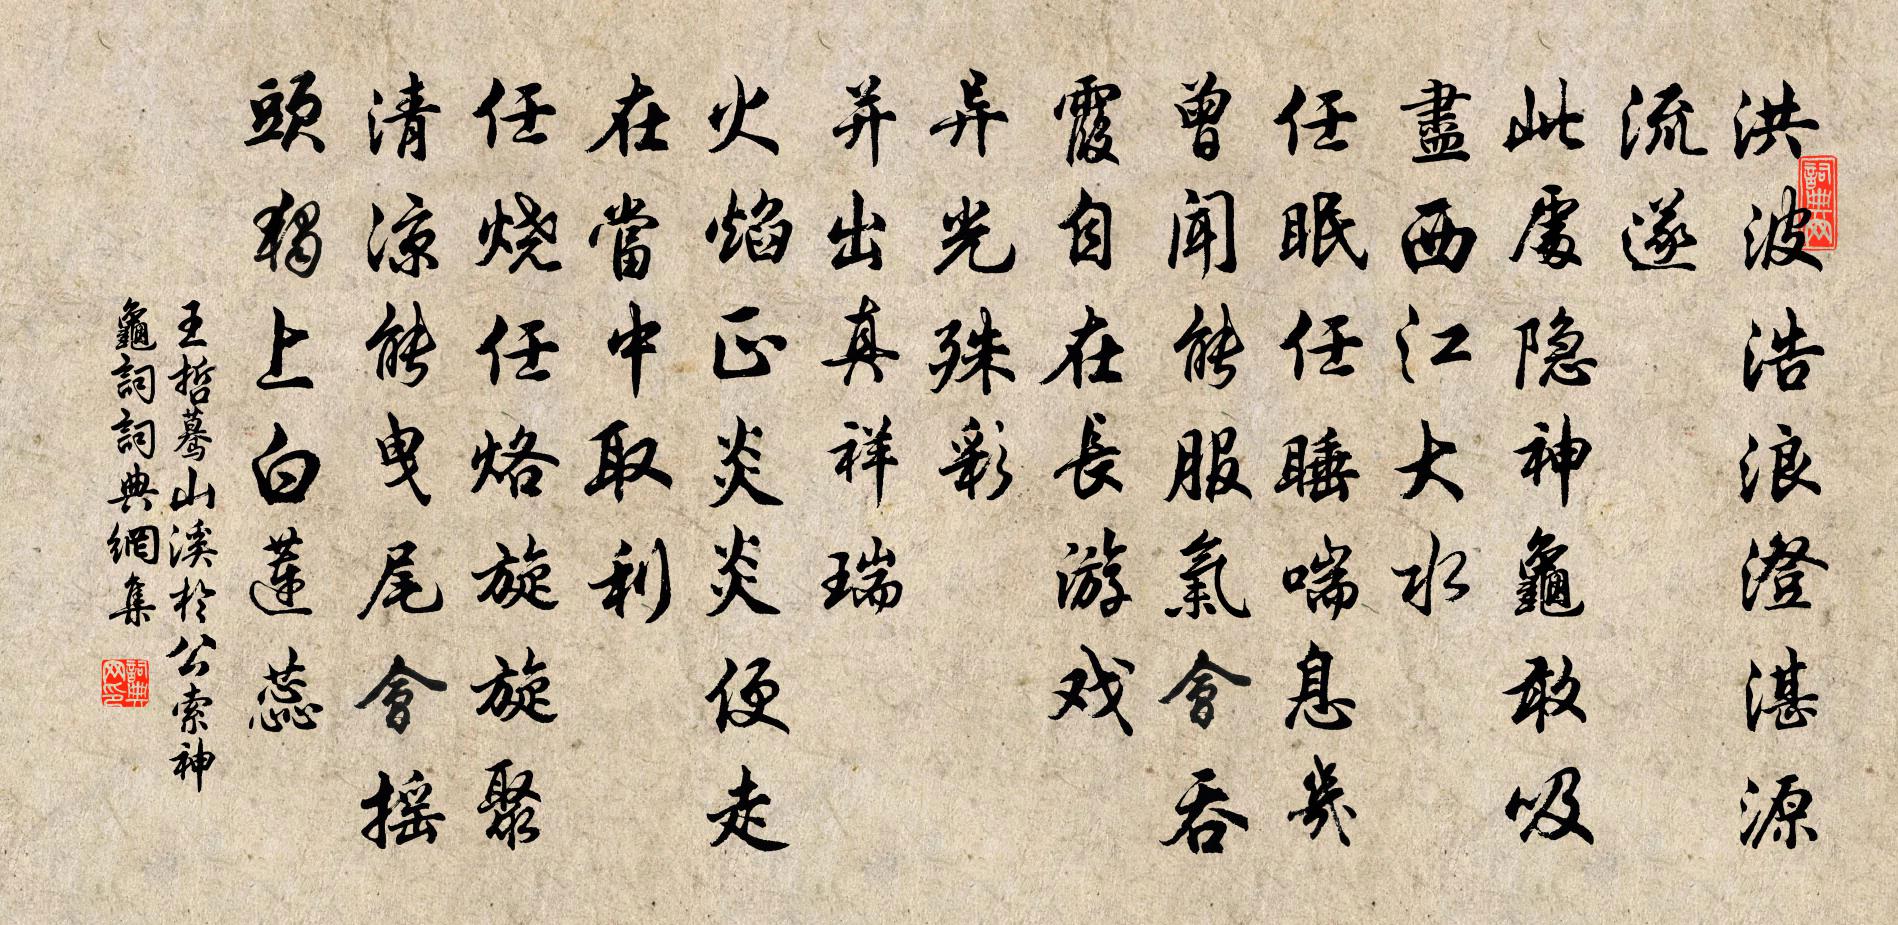 洪波浩浪澄湛源
流邃
此處隐神龜敢吸
盡西江大水
任眠任睡喘息幾
曾聞能服氣會吞
霞自在長游戏
异光殊彩
并出真祥瑞
火焰正炎炎便走
在當中取利
任烧任烙旋旋聚
清凉能曳尾會摇
頭獨上白蓮蕊
王哲驀山溪於公索神
龜詞詞典網集
詞典网
詞典网印